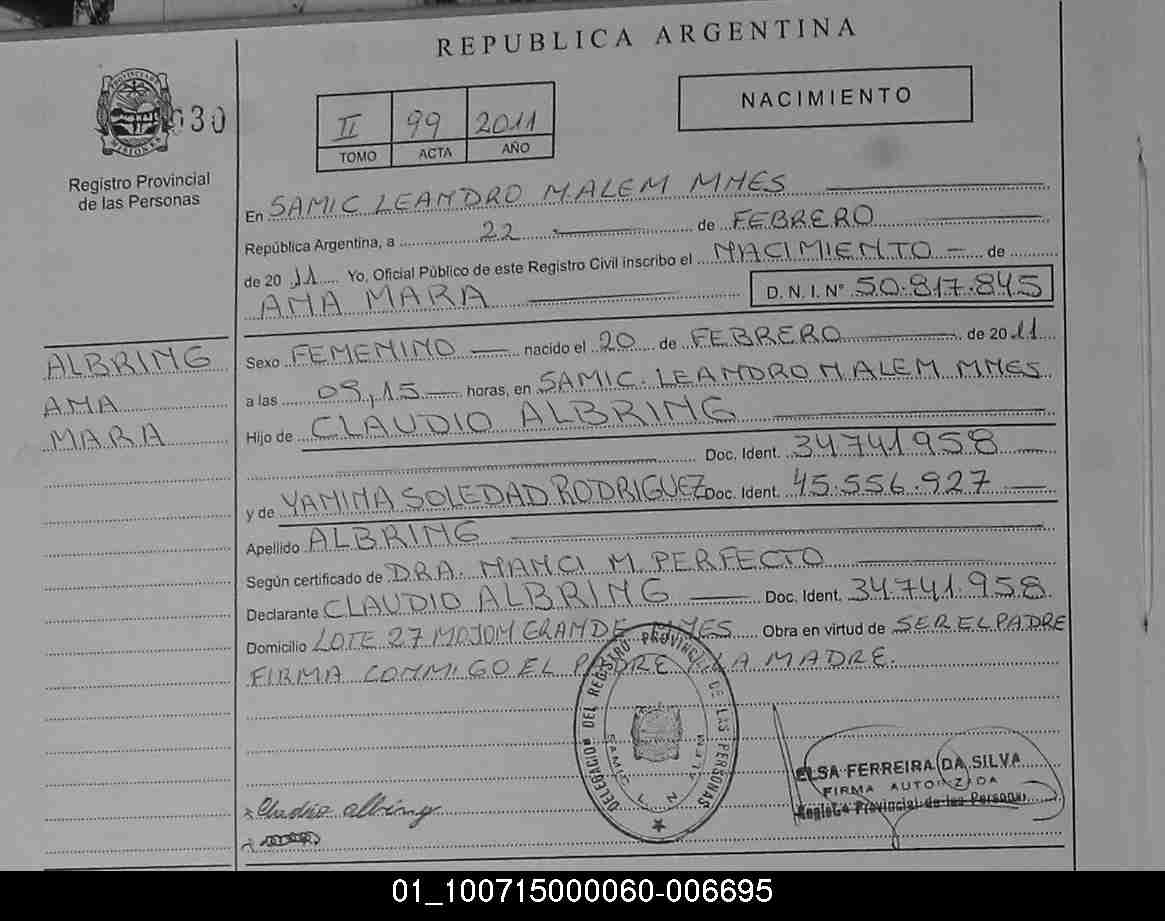 REPUBLICA ARGENTINA
NACIMIENTO
PROVINCIA DE MISIONES
030
Registro Provincial
de las Personas
II 99 2011
TOMO ACTA AÑO
En SAMIC LEANDRO N. ALEM MNES
República Argentina, a 22 de FEBRERO
de 2011 Yo, Oficial Público de este Registro Civil inscribo el NACIMIENTO de
ANA MARA D. N. I. Nº 50.817.845
ALBRING
ANA
MARA
Sexo FEMENINO nacido el 20 de FEBRERO de 2011
a las 09,15 horas, en SAMIC. LEANDRO N ALEM MNES
Hijo de CLAUDIO ALBRING
Doc. Ident. 34741958
y de YANINA SOLEDAD RODRIGUEZ Doc. Ident. 45.556.927
Apellido ALBRING
Según certificado de DRA. NANCI M. PERFECTO
Declarante CLAUDIO ALBRING Doc. Ident. 34.741.958
Domicilio LOTE 27 MOJON GRANDE MNES Obra en virtud de SER EL PADRE
FIRMA CONMIGO EL PADRE Y LA MADRE.
DELEGACION DEL REGISTRO PROVINCIAL DE LAS PERSONAS
SAMIC L. N. ALEM
ELSA FERREIRA DA SILVA
FIRMA AUTORIZADA
Registro Provincial de las Personas
Claudio albring
01_100715000060-006695